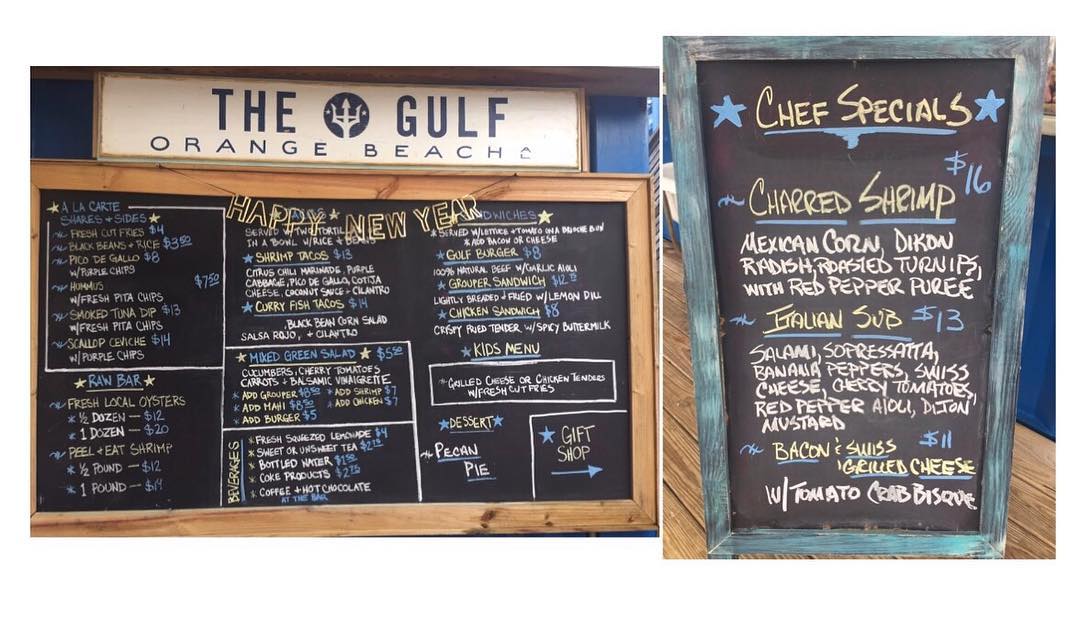 THE GULF
ORANGE BEACH
HAPPY NEW YEAR
A LA CARTE
SHARES + SIDES
FRESH CUT FRIES $4
BLACK BEANS + RICE $3.50
PICO DE GALLO $8
W/PURPLE CHIPS
HUMMUS $7.50
W/FRESH PITA CHIPS
SMOKED TUNA DIP $13
W/FRESH PITA CHIPS
SCALLOP CEVICHE $14
W/PURPLE CHIPS
RAW BAR
FRESH LOCAL OYSTERS
* ½ DOZEN — $12
* 1 DOZEN — $20
PEEL + EAT SHRIMP
* ½ POUND — $12
* 1 POUND — $19
TACOS
SERVED W/ TWO
IN A BOWL W/RICE + BEANS
SHRIMP TACOS $13
CITRUS CHILI MARINADE, PURPLE
CABBAGE, PICO DE GALLO, COTIJA
CHEESE, COCONUT SAUCE + CILANTRO
CURRY FISH TACOS $14
BLACK BEAN CORN SALAD
SALSA ROJO, + CILANTRO
MIXED GREEN SALAD $5.50
CUCUMBERS, CHERRY TOMATOES
CARROTS + BALSAMIC VINAIGRETTE
* ADD GROUPER $8.50 * ADD SHRIMP $7
* ADD MAHI $8.50 * ADD CHICKEN $7
* ADD BURGER $5
BEVERAGES
* FRESH SQUEEZED LEMONADE $4
* SWEET OR UNSWEET TEA
* BOTTLED WATER
* COKE PRODUCTS
* COFFEE + HOT CHOCOLATE
AT THE BAR
SERVED W/LETTUCE + TOMATO ON A BRIOCHE BUN
* ADD BACON OR CHEESE
GULF BURGER $8
100% NATURAL BEEF W/GARLIC AIOLI
GROUPER SANDWICH
LIGHTLY BREADED + FRIED W/LEMON DILL
CHICKEN SANDWICH $8
CRISPY FRIED TENDER W/ SPICY BUTTERMILK
KIDS MENU
* GRILLED CHEESE OR CHICKEN TENDERS
W/FRESH CUT FRIES
DESSERT
PECAN
PIE
GIFT
SHOP
CHEF SPECIALS
$16
CHARRED SHRIMP
MEXICAN CORN, DIKON
RADISH, ROASTED TURNIPS,
WITH RED PEPPER PUREE
ITALIAN SUB $13
SALAMI, SOPRESSATTA,
BANANA PEPPERS, SWISS
CHEESE, CHERRY TOMATOES,
RED PEPPER AIOLI, DIJON
MUSTARD
BACON & SWISS $11
GRILLED CHEESE
W/ TOMATO CRAB BISQUE